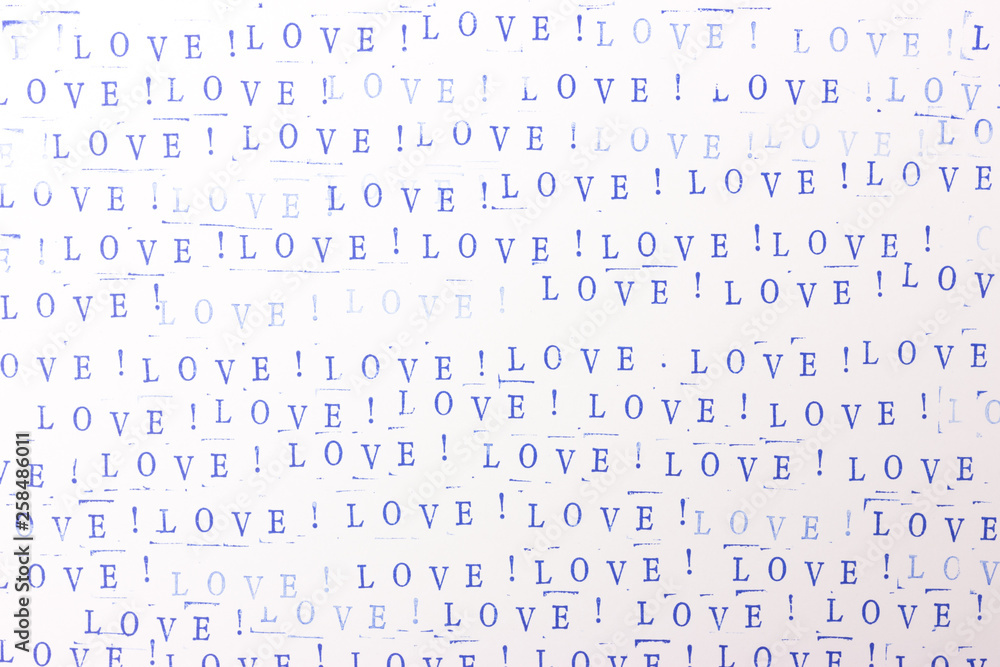 E ! LOVE ! LOVE ! LOVE ! LOVE ! LOVE ! L
LOVE ! LOVE ! LOVE ! LOVE ! LOVE ! LOV
E ! LOVE ! LOVE ! LOVE ! LOVE ! LOVE ! LO
LOVE ! LOVE ! LOVE ! LOVE ! LOVE ! LOVE
E ! LOVE ! LOVE ! LOVE ! LOVE ! LOVE !
LOVE ! LOVE ! LOVE ! LOVE ! LOVE ! LOV
OVE ! LOVE ! LOVE ! LOVE . LOVE ! LOVE
LOVE ! LOVE ! LOVE ! LOVE ! LOVE ! LO
VE ! LOVE ! LOVE ! LOVE ! LOVE ! LOVE
OVE ! LOVE ! LOVE ! LOVE ! LOVE ! LOVE
LOVE ! LOVE ! LOVE ! LOVE ! LOVE ! LO
LOVE ! LOVE ! LOVE ! LOVE ! LOVE !
LOVE ! LOVE ! LOVE ! LOVE ! LOVE ! LOV
Adobe Stock | #258486011